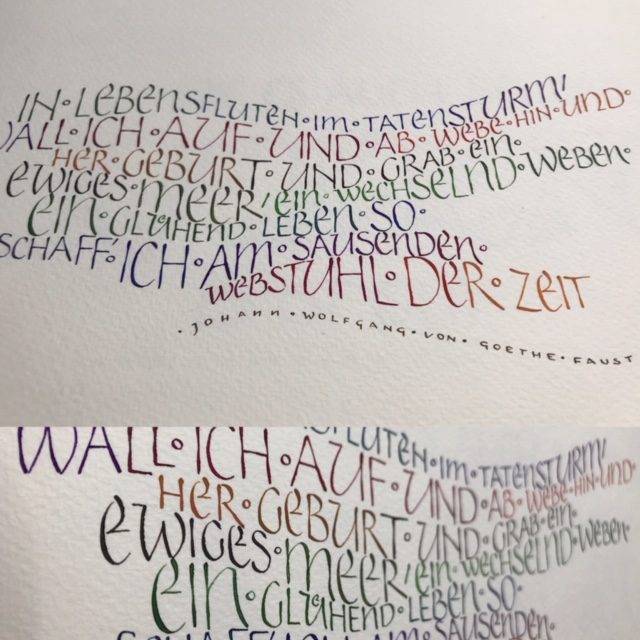 IN·LEBENSFLUTEN·IM·TATENSTURM!
WALL·ICH·AUF·UND·AB·WEBE·HIN·UND·
HER·GEBURT·UND·GRAB·EIN·
EWIGES·MEER!EIN·WECHSELND·WEBEN·
EIN·GLÜHEND·LEBEN·SO·
SCHAFF'ICH·AM·SAUSENDEN·
WEBSTUHL·DER·ZEIT
·JOHANN·WOLFGANG·VON·GOETHE·FAUST
SFLUTEN·IM·TATENSTURM!
WALL·ICH·AUF·UND·AB·WEBE·HIN·UND
HER·GEBURT·UND·GRAB·EIN·
EWIGES·MEER!EIN·WECHSELND·WEBEN·
EIN·GLÜHEND·LEBEN·SO·
SCHAFF'ICH·AM·SAUSENDEN·